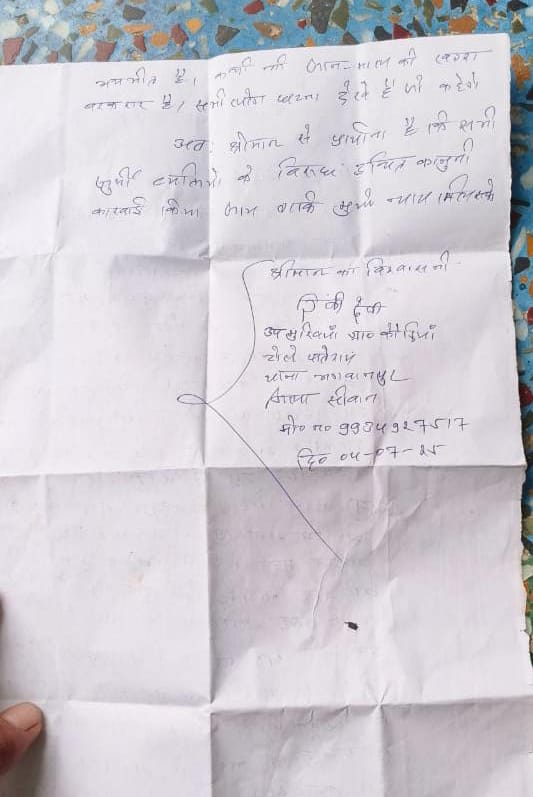 भयभीत है। कभी भी जान-माल की खतरा
बरकरार है, सभी लोग घटना देखे है जो कहेगे
अतः श्रीमान से प्रार्थना है कि सभी
व्यक्तियो के विरूध उचित कानुनी
कारवाई किया जाय ताकि मुझे न्याय मिल सके
श्रीमान का विश्वासनी
पिंकी देवी
उप मुखियाँ ग्रा० कौड़ियाँ
टोले
थाना भगवानपुर
जिला सीवान
मो० न० 9934927517
दि० 04-07-25